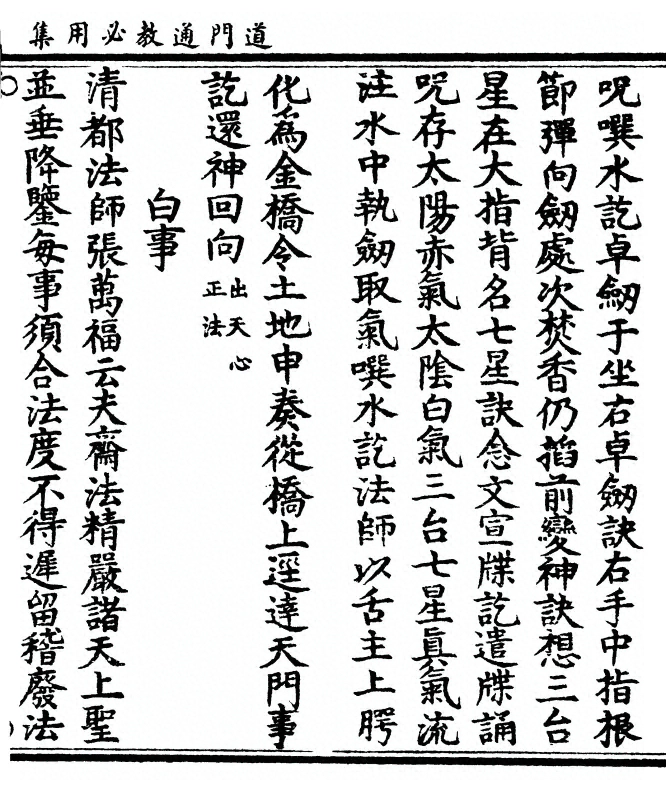 道門通教必用集
呪噀水訖卓劒于坐右卓劒訣右手中指根
節彈向劒處次焚香仍掐前變神訣想三台
星在大指背名七星訣念文宣牒訖遣牒誦
呪存太陽赤氣太陰白氣三台七星眞氣流
注水中執劒取氣噀水訖法師以舌主上腭
化爲金橋令土地申奏從橋上逕達天門事
訖還神回向出天心正法
白事
清都法師張萬福云夫齋法精嚴諸天上聖
並垂降鑒每事須合法度不得遲留稽廢法